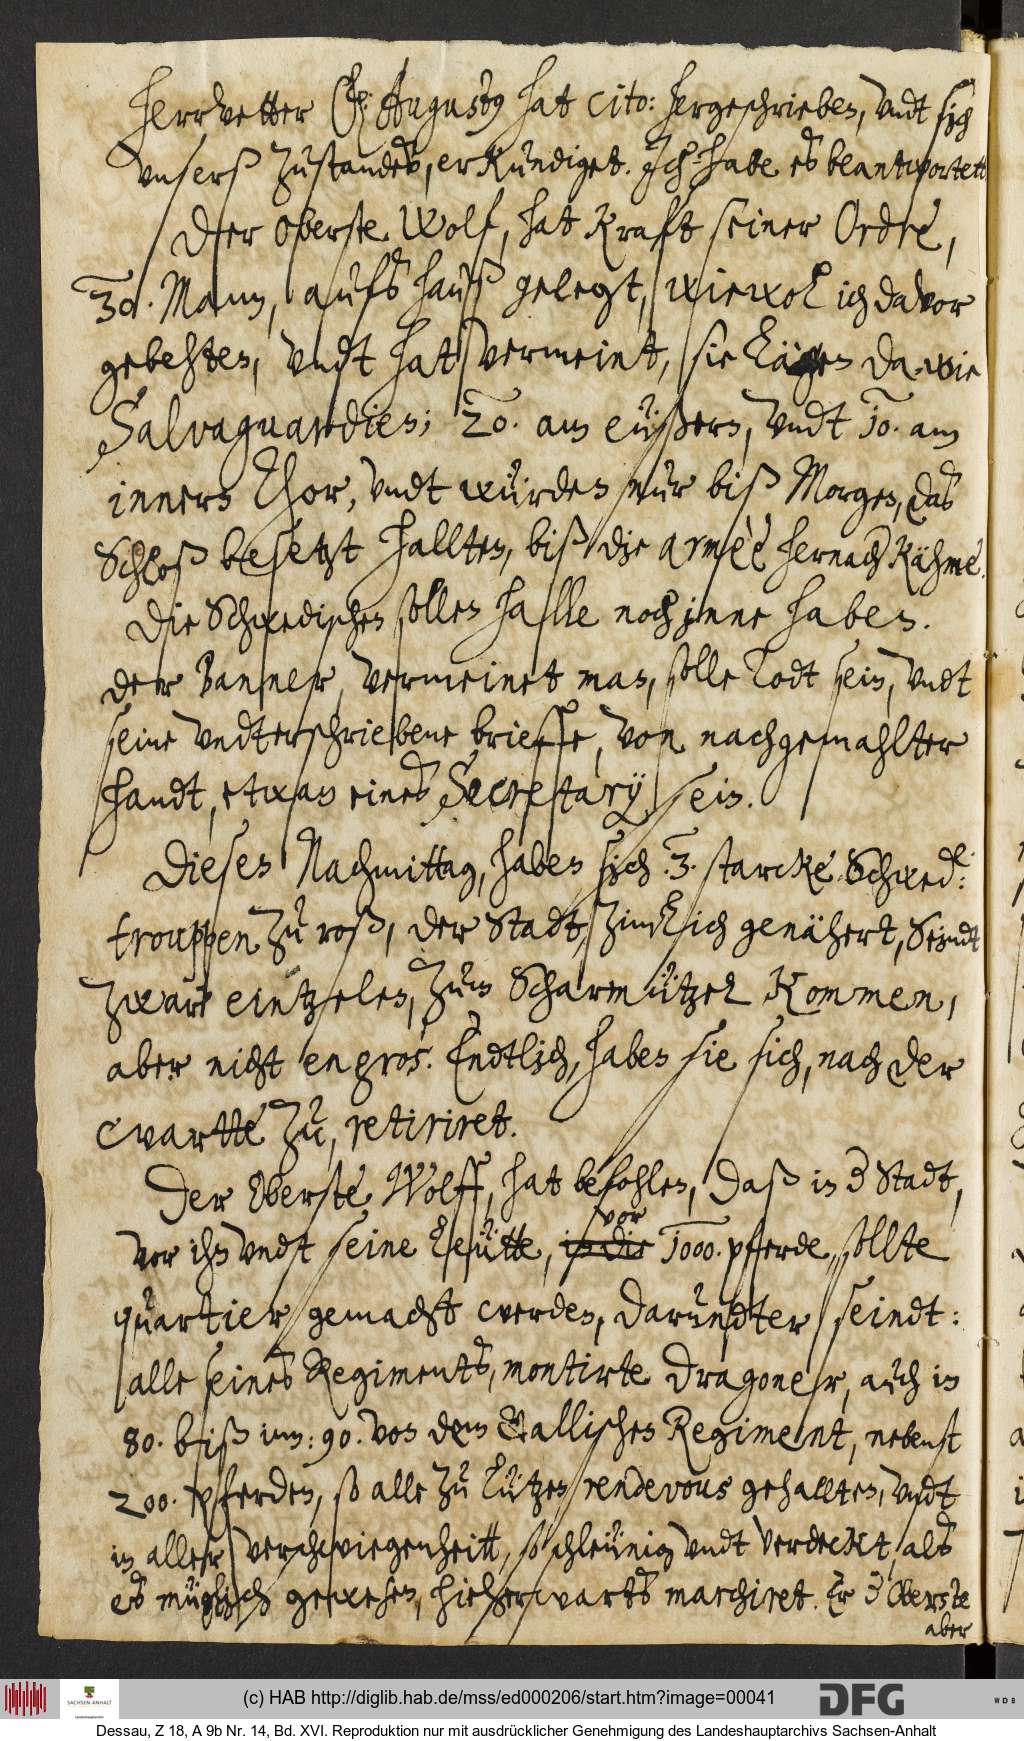 Herrvetter F: Augustus hat cito: hergeschrieben, vndt sich
vnserß zustandes, erkundiget. Jch habe es beantwortett
Der Oberste Wolf, hat kraft seiner Ordre,
30. Mann, aufs hauß gelegt, wiewol ich davor
gebehten, vndt hat vermeint, sie lägen da wie
Salvaguardien; 20. am eüßern, vndt 10. am
innern Thor, vndt würden nur biß Morgen, das
Schloß besetzt hallten, biß die armèè hernach kähme.
Die Schwedischen sollen Halle noch jnne haben.
der Banner, vermeinet man, solle Todt sein, vndt
seine vndterschriebene brieffe, von nachgemahlter
handt, etwan eines Secretarij sein.
Diesen Nachmittag, haben sich .3. starcke Schwed:e
trouppen zu roß, der Stadt, zimlich genähert, Seindt
zwar eintzelen, zum Scharmützel kommen,
aber nicht en gros. Endtlich, haben sie sich, nach der
Cvartte zu, retiriret.
Der Oberste Wolff, hat befohlen, daß in d Stadt,
vor ihn vndt seine Leütte, in die vor 1000. pferde, sollte
quartier gemacht werden, darundter seindt:
alle seines Regiments, montirte Dragoner, auch in
80. biß in: 90. von dem Gallischen Regiment, nebenst
200. pferden, so alle zu Lützen rendevous gehallten, vndt
in aller verschwiegenheitt, so schleünig vndt verdeckt, als
es müglich gewesen, hieherwarts marchiret. Er d Oberste
aber
(c) HAB http://diglib.hab.de/mss/ed000206/start.htm?image=00041
SACHSEN-ANHALT
Landeshauptarchiv
DFG
WDB
Dessau, Z 18, A 9b Nr. 14, Bd. XVI. Reproduktion nur mit ausdrücklicher Genehmigung des Landeshauptarchivs Sachsen-Anhalt